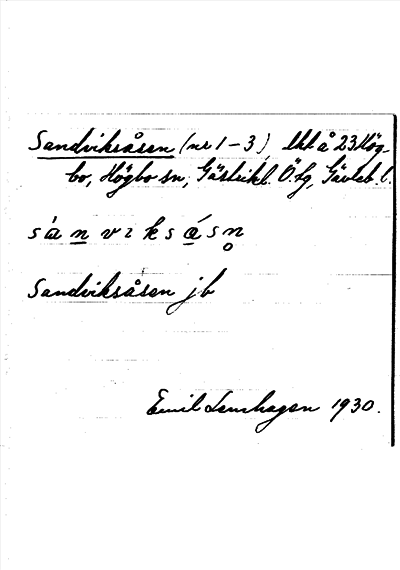 Sandviksåsen (nr 1-3), lht å 23 Hög-
bo, Högbo sn, Gästrikl. Ö. tg, Gävleb. l.
sánvıksåsn̥
Sandviksåsen jb
Emil Lenhagen 1930.